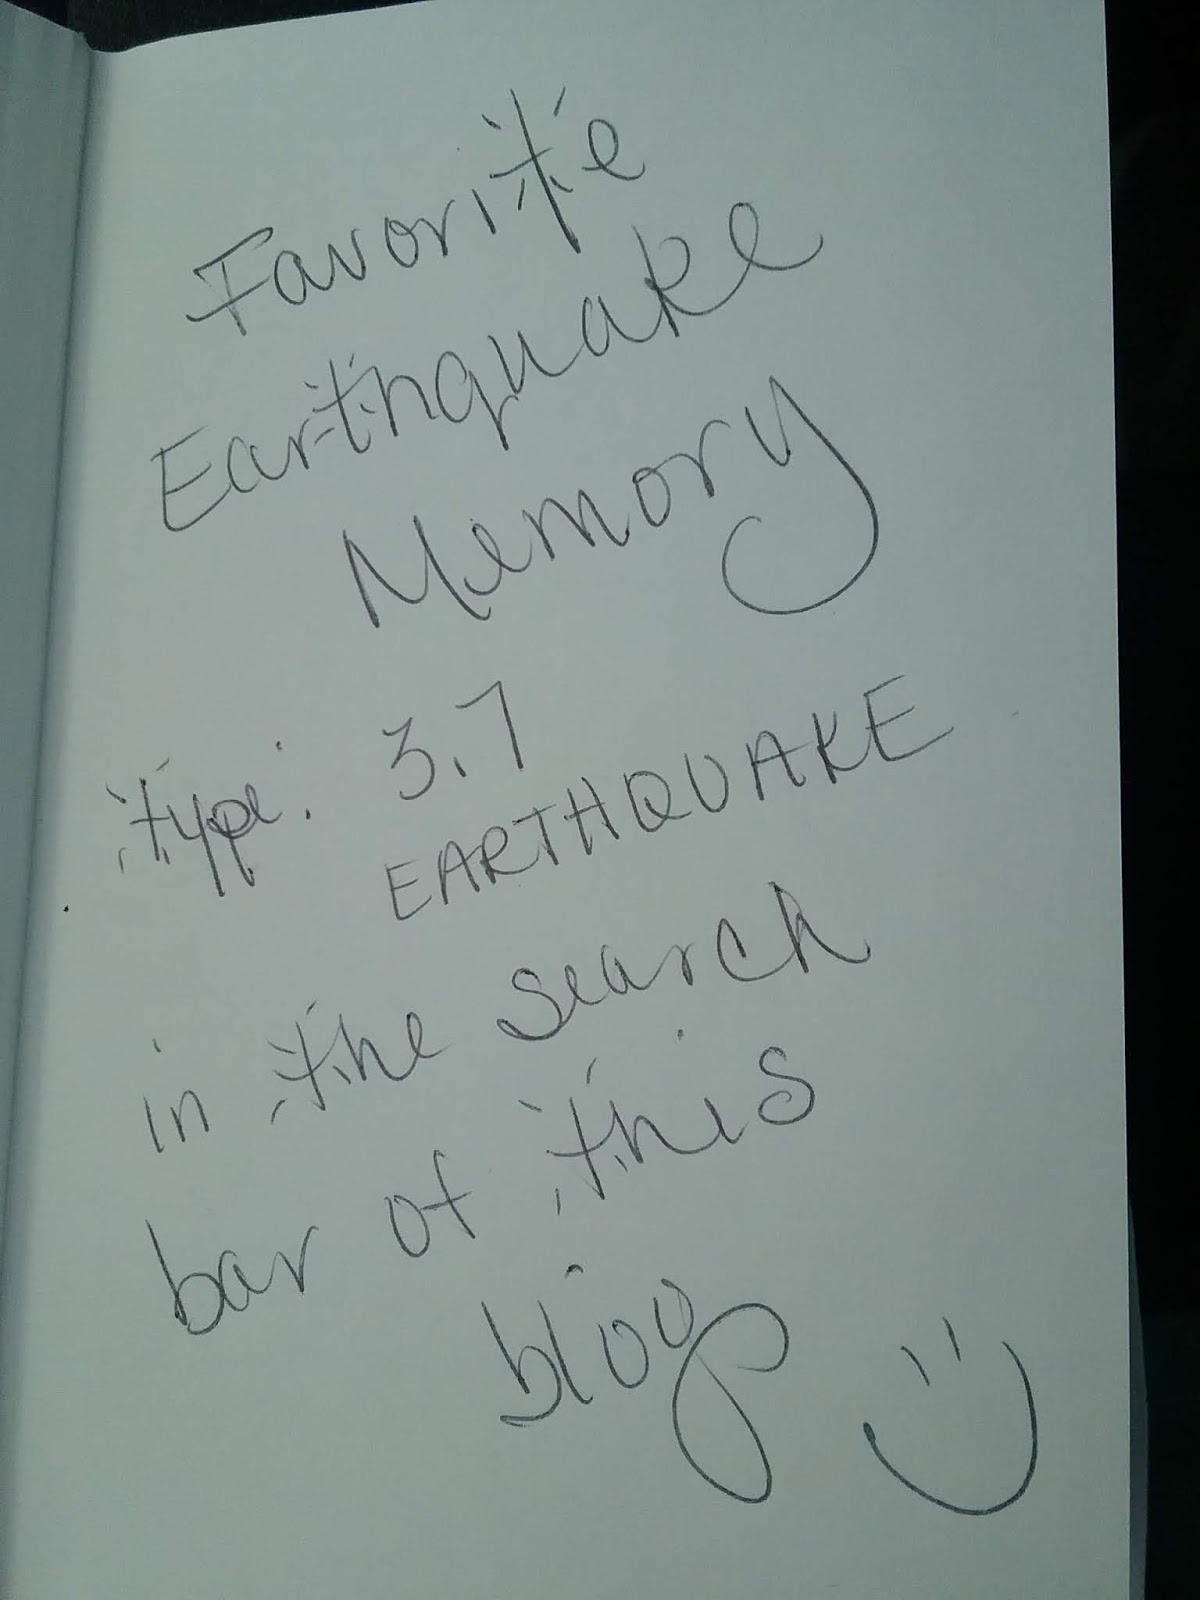 Favorite
Earthquake
Memory
type: 3.7
EARTHQUAKE
in the search
bar of this
blog